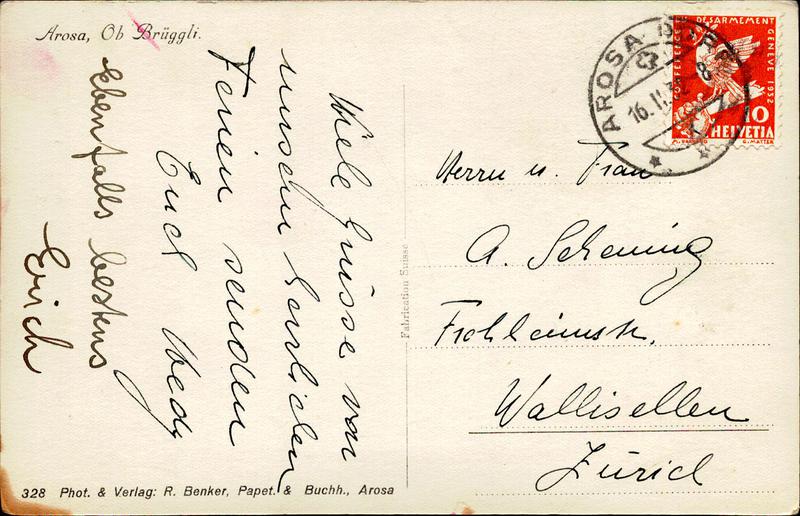 Arosa, Ob Brüggli.
Viele Grüsse von
unsern herrlichen
Ferien senden
Euch Hedy
Ebenfalls bestens
Erich
Fabrication Suisse
328 Phot. & Verlag: R. Benker, Papet. & Buchh., Arosa
AROSA
16. II. 32 - 8
CONFERENCE DU DESARMEMENT GENÈVE 1932
10
HELVETIA
G. MATTER
Herrn u. Frau
A.
Wallisellen
Zürich